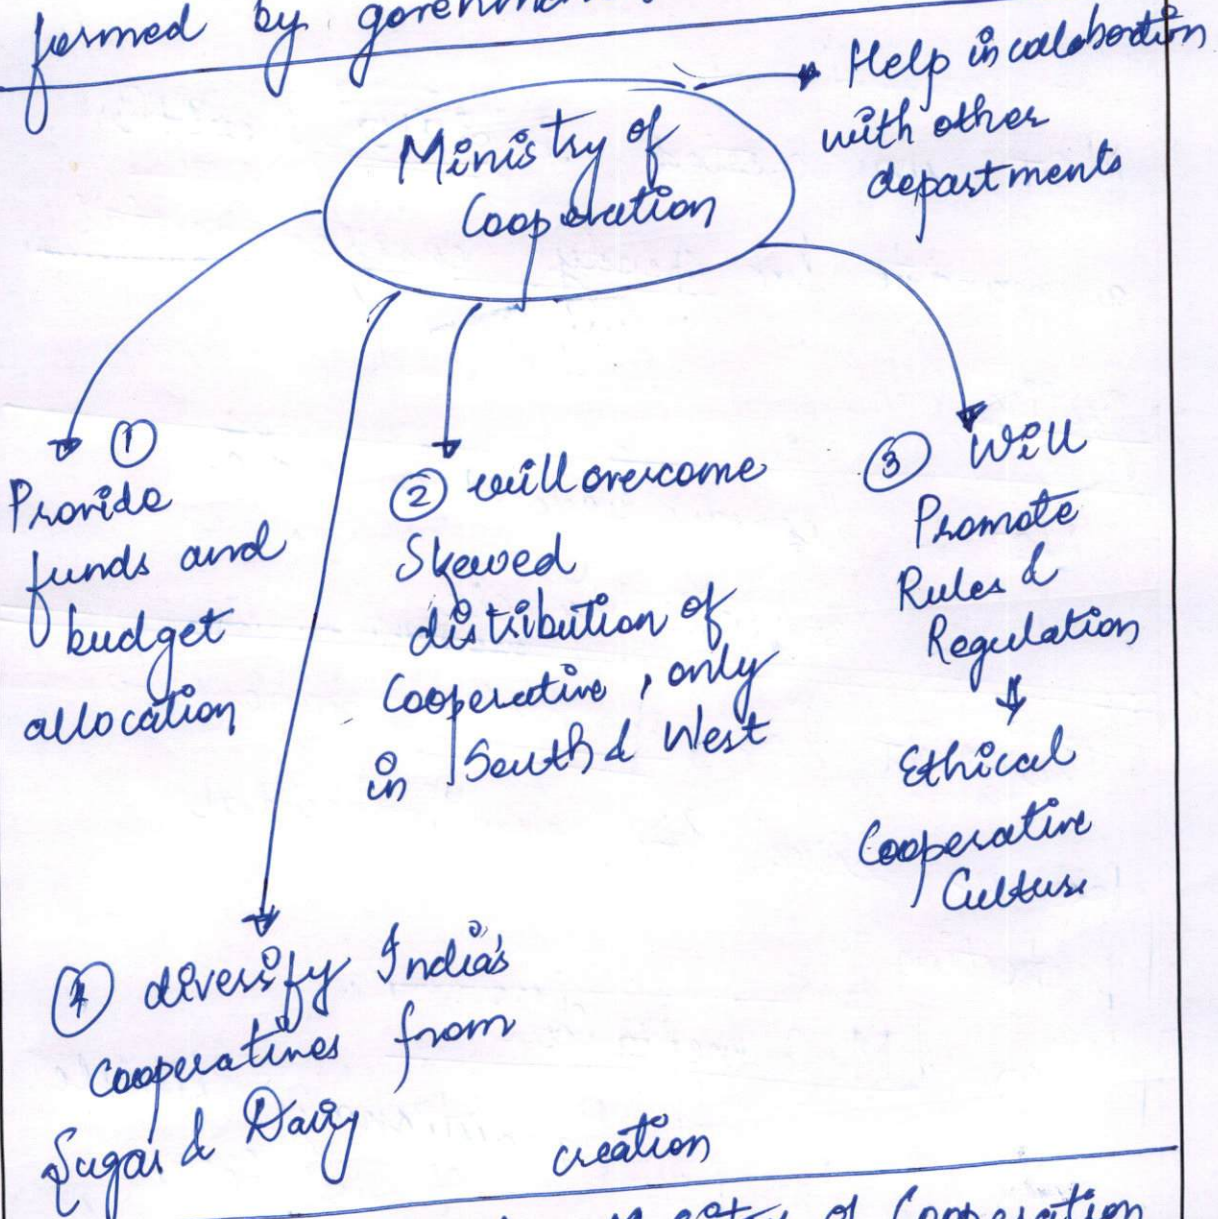 formed by government
Ministry of
Cooperation
Help in collabortion
with other
departments
①
Provide
funds and
budget
allocation
② will overcome
Skewed
distribution of
Cooperative, only
in South & West
③ Will
Promote
Rules &
Regulation
Ethical
Cooperative
Culture
④ diversify India's
cooperatives from
Sugar & Dairy
creation
of Cooperation